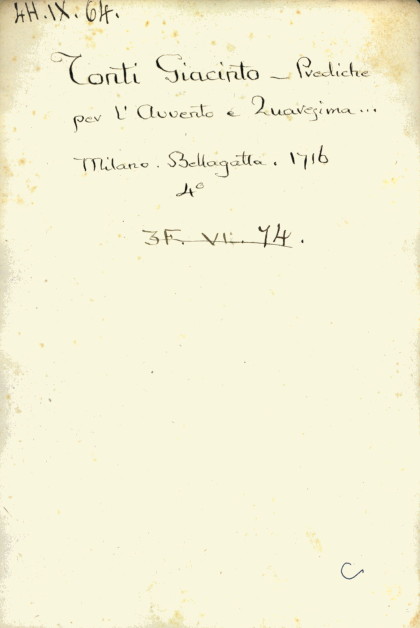 4H.IX.64.
Tonti Giacinto - Prediche
per l'Avvento e Quaresima...
Milano. Bellagatta. 1716
4°
3F. VI. 74.
C